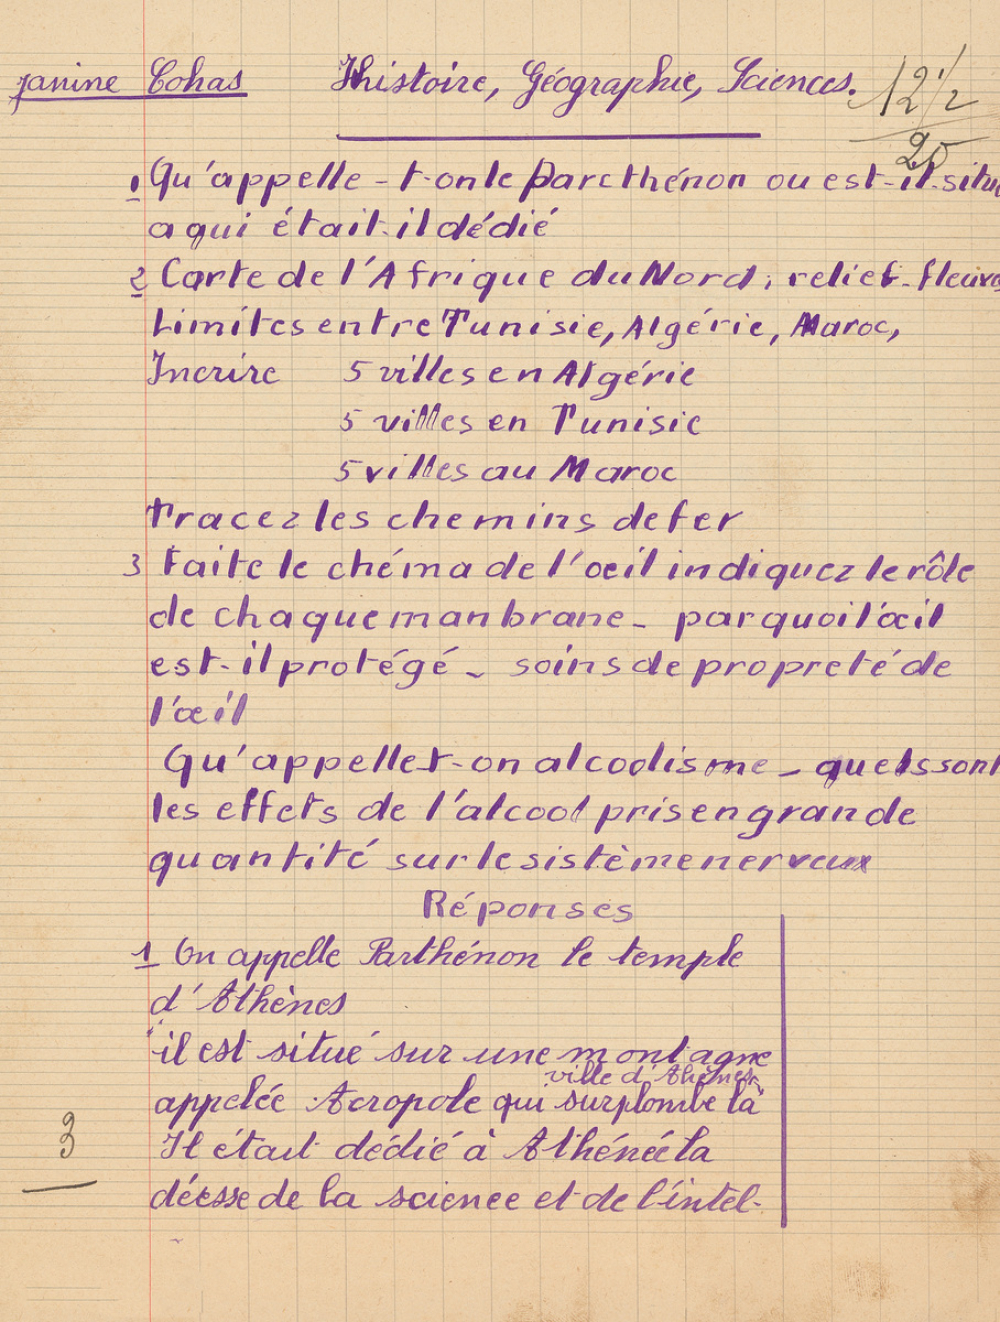 Janine Cohas Histoire, Géographie, Sciences. 12 1/2
20
1 Qu'appelle-t-on le Parcthénon ou est-il situé
a qui était-il dédié
2 Carte de l'Afrique du Nord; relief-fleuves
Limites entre Tunisie, Algérie, Maroc,
Incrire 5 villes en Algérie
5 villes en Tunisie
5 villes au Maroc
Tracez les chemins de fer
3 Faite le chéma de l'oeil indiquez le rôle
de chaque manbrane - par quoi l'œil
est-il protégé - soins de propreté de
l'œil
Qu'appellet-on alcoolisme - quels sont
les effets de l'alcool pris en grande
quantité sur le sistème nerveux
Réponses
1 On appelle Parthénon le temple
d'Athènes
il est situé sur une montagne
ville d'Athènes
appelée Acropole qui surplombe la
Il était dédié à Athénée la
3
déesse de la science et de l'intel-